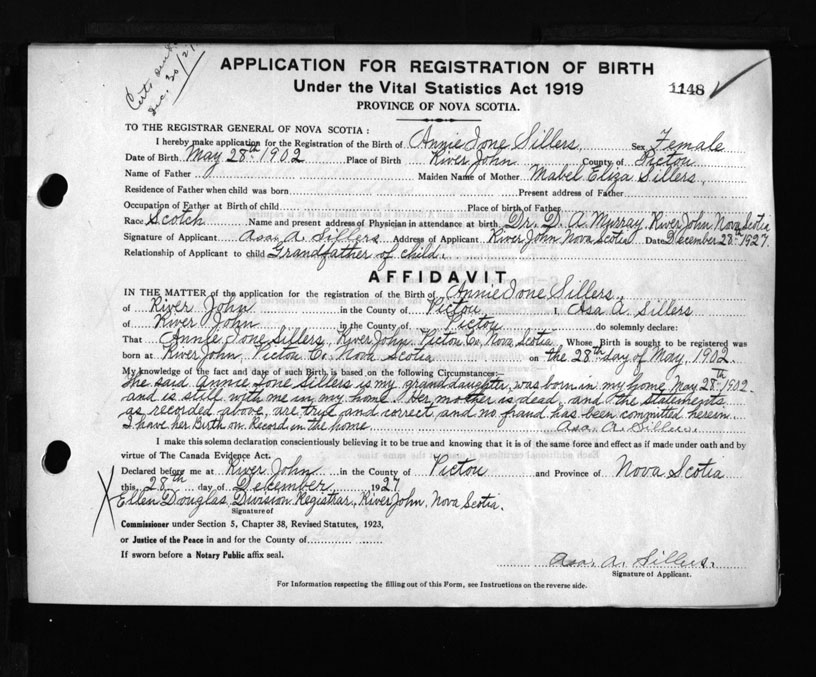 Certs
Dec. 30/27
APPLICATION FOR REGISTRATION OF BIRTH
Under the Vital Statistics Act 1919
1148
PROVINCE OF NOVA SCOTIA.
TO THE REGISTRAR GENERAL OF NOVA SCOTIA:
I hereby make application for the Registration of the Birth of Annie Ione Sillers. Sex Female
Date of Birth May 28th 1902 Place of Birth River John County of Pictou
Name of Father Maiden Name of Mother Mabel Eliza Sillers.
Residence of Father when child was born Present address of Father
Occupation of Father at Birth of child Place of birth of Father
Race Scotch Name and present address of Physician in attendance at birth Dr. D. A. Murray, River John, Nova Scotia
Signature of Applicant Asa. A. Sillers Address of Applicant River John Nova Scotia Date December 28th 1927.
Relationship of Applicant to child Grandfather of child.
AFFIDAVIT
IN THE MATTER of the application for the registration of the Birth of Annie Ione Sillers.
of River John in the County of Pictou I, Asa A. Sillers
of River John in the County of Pictou do solemnly declare:
That Annie Ione Sillers, River John, Pictou Co, Nova Scotia, Whose Birth is sought to be registered was
born at River John, Pictou Co. Nova Scotia on the 28th day of May, 1902.
My knowledge of the fact and date of such Birth is based on the following Circumstances:—
The said Annie Ione Sillers is my granddaughter, was born in my home May 28th 1902
and is still with me in my home. Her mother is dead, and the statements
as recorded above, are true and correct, and no fraud has been committed herein.
I have her Birth on Record in the home. Asa. A. Sillers.
I make this solemn declaration conscientiously believing it to be true and knowing that it is of the same force and effect as if made under oath and by
virtue of The Canada Evidence Act.
Declared before me at River John in the County of Pictou and Province of Nova Scotia
this, 28th day of December 1927
X Ellen Douglas, Division Registrar, River John, Nova Scotia.
Signature of
Commissioner under Section 5, Chapter 38, Revised Statutes, 1923,
or Justice of the Peace in and for the County of
If sworn before a Notary Public affix seal.
Asa. A. Sillers.
Signature of Applicant.
For Information respecting the filling out of this Form, see Instructions on the reverse side.